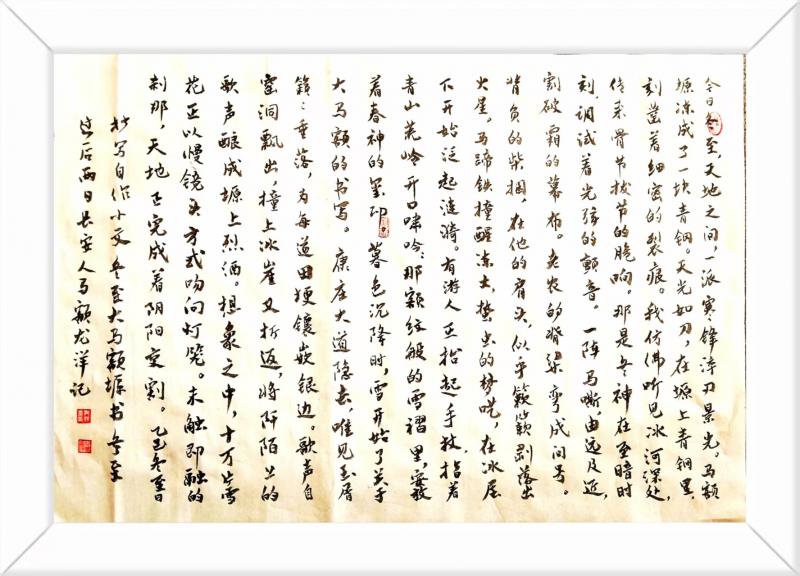 今日冬至，天地之间，一派寒锋淬刃景光。马额
塬冻成了一块青铜。天光如刀，在塬上青铜里，
刻凿着细密的裂痕。我仿佛听见冰河深处，
传来骨节拔节的脆响。那是冬神在至暗时
刻，调试着光弦的颤音。一阵马嘶，由远及近，
割破霜的幕布。老农的脊梁弯成问号。
背负的柴捆，在他的肩头，似乎簌簌剥落出
火星。马蹄铁撞醒冻土，蛰虫的梦呓，在冰层
下开始泛起涟漪。有游人正抬起手杖，指着
青山荒岭开口啸吟：那额纹般的雪褶里，蜜
着春神的玺印。暮色沉降时，雪开始了关于
大马额的书写。康庄大道隐去，唯见玉屑
簌簌垂落，为每道田埂镶嵌银边。歌声自
窑洞飘出，撞上冰崖又折返，将阡陌上的
歌声酿成塬上烈酒。想象之中，十万片雪
花正以慢镜头方式吻问灯笼。未触即融的
刹那，天地正完成着阴阳变割。乙巳冬至日
抄写自作小文冬至大马额塬书冬至
后两日长安人马额龙洋记